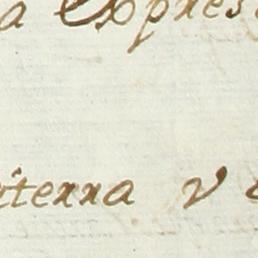 a Expres
terra v